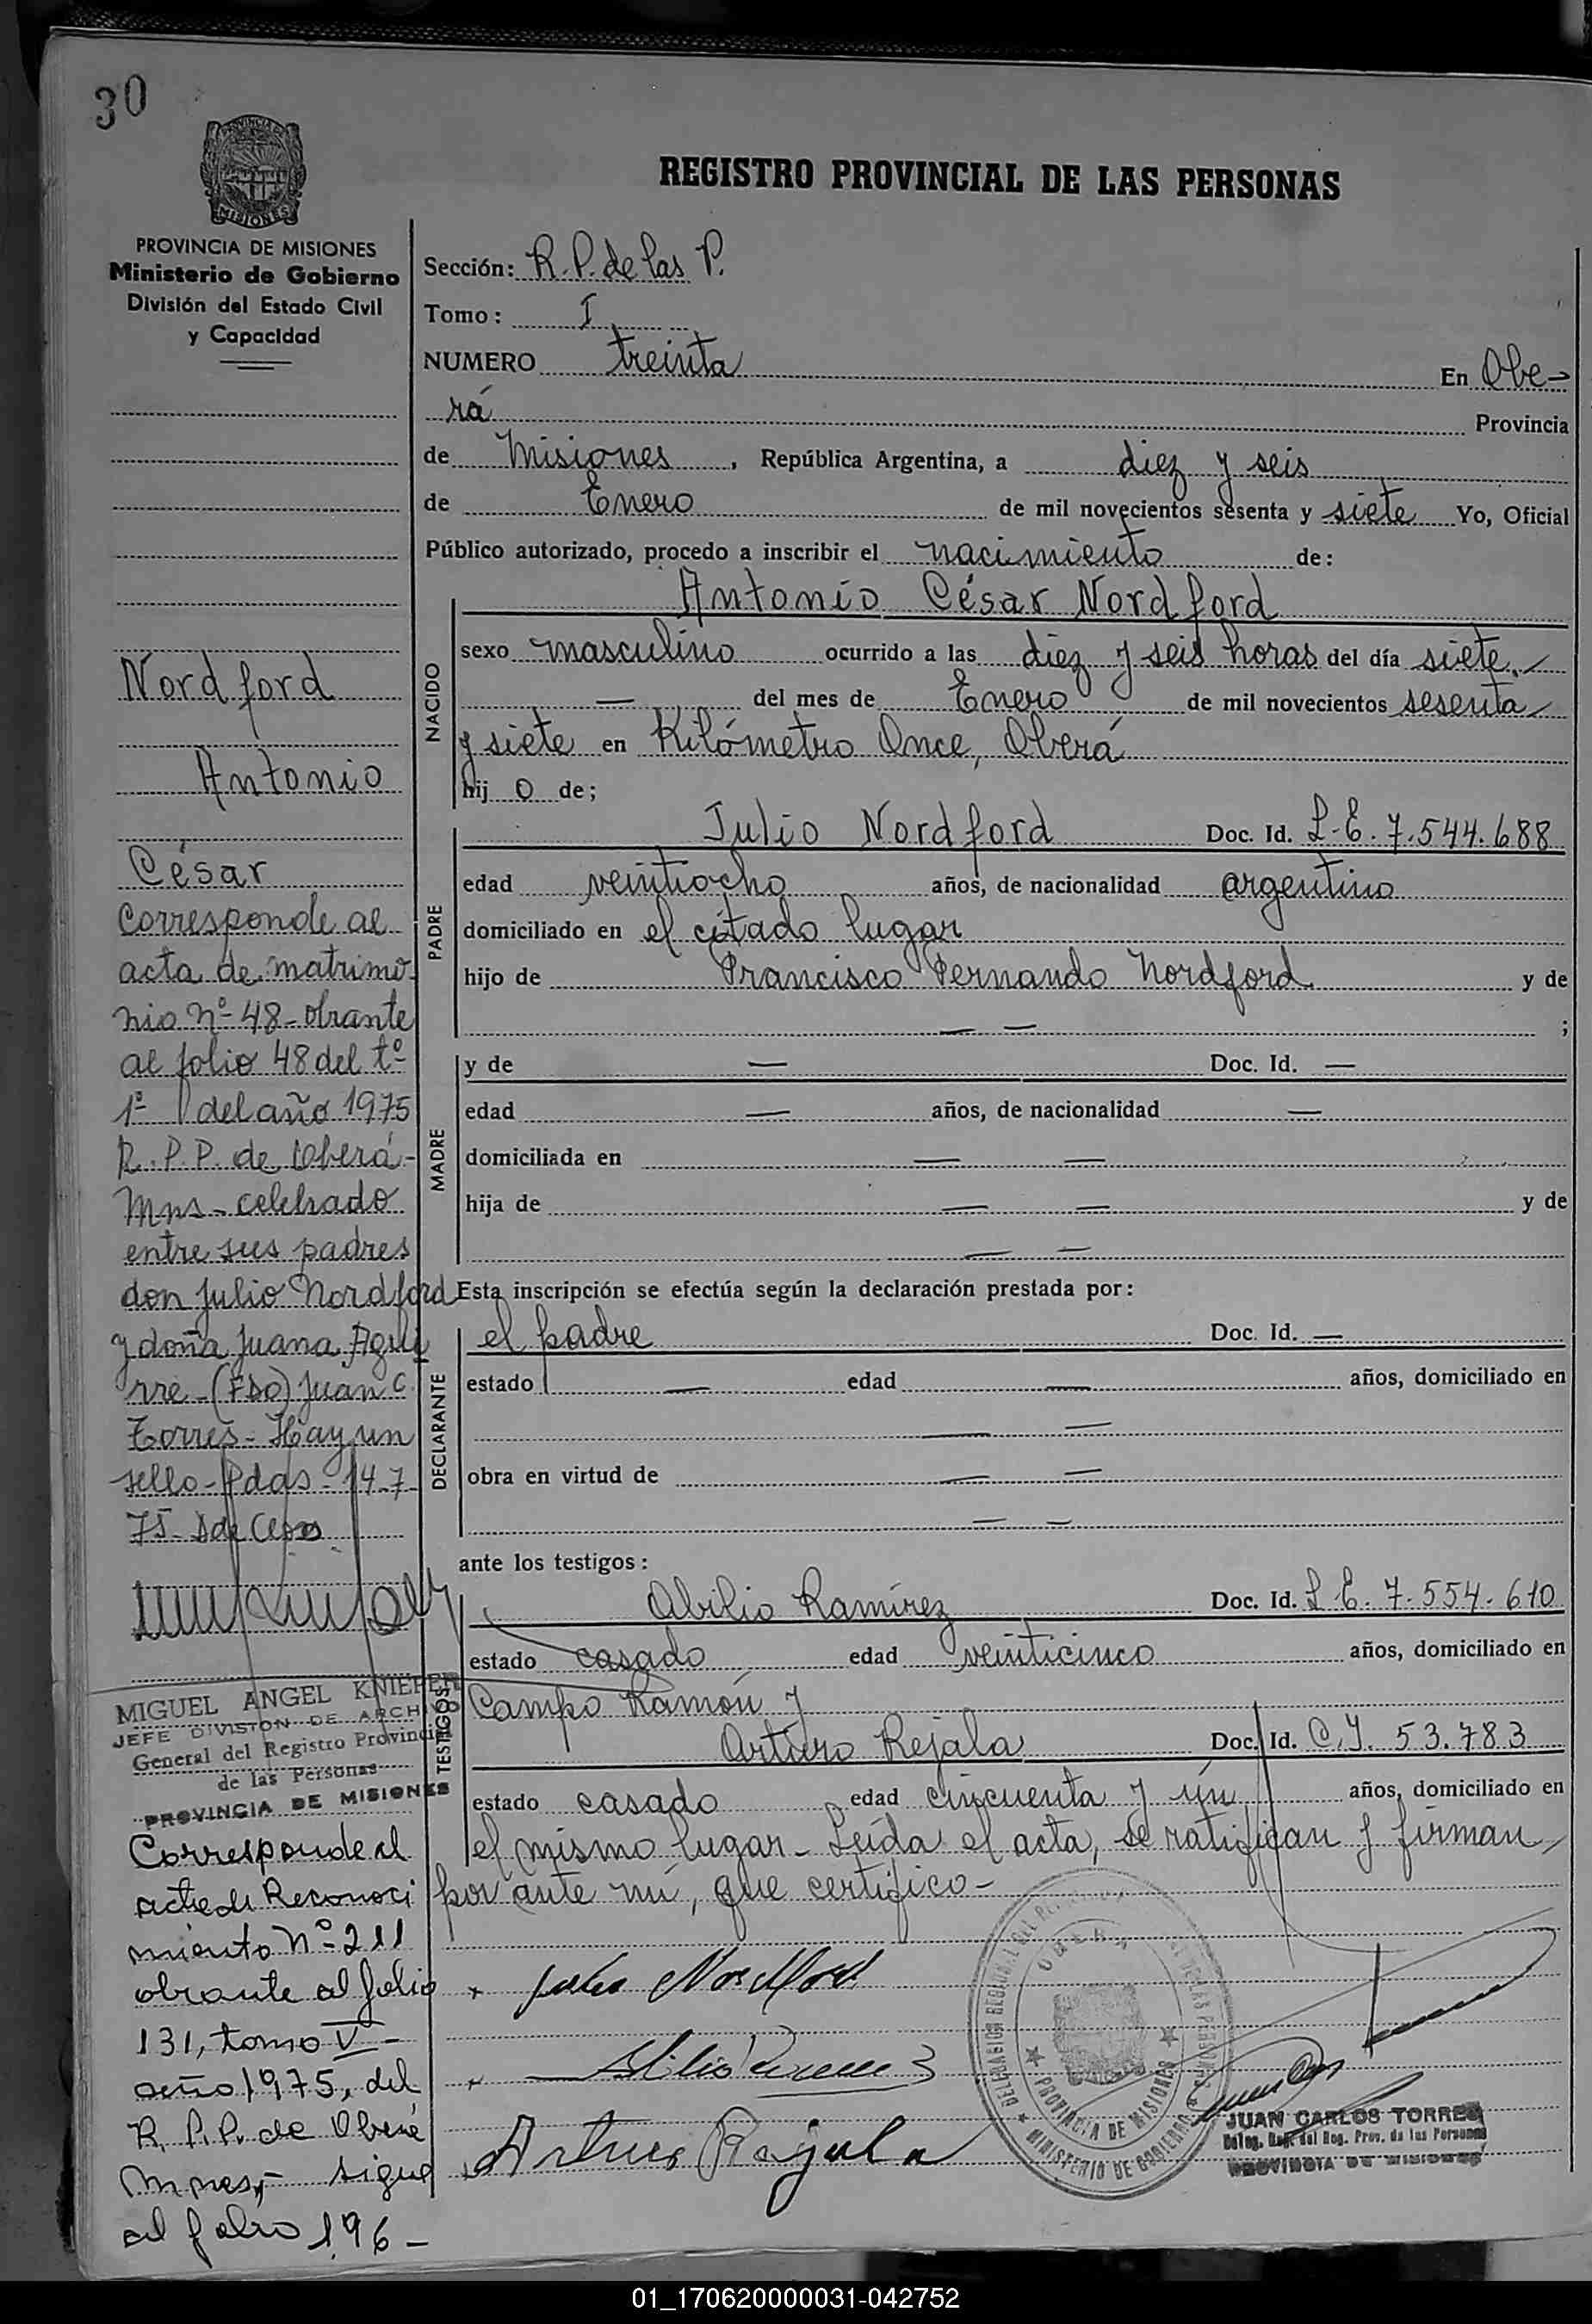 30
PROVINCIA DE
MISIONES
PROVINCIA DE MISIONES
Ministerio de Gobierno
División del Estado Civil
y Capacidad
REGISTRO PROVINCIAL DE LAS PERSONAS
Sección: R.P. de las P.
Tomo: I
NUMERO treinta En Obe-
rá Provincia
de Misiones, República Argentina, a diez y seis
de Enero de mil novecientos sesenta y siete Yo, Oficial
Público autorizado, procedo a inscribir el nacimiento de:
Antonio César Nordford
NACIDO
sexo masculino ocurrido a las diez y seis horas del día siete
— del mes de Enero de mil novecientos sesenta
y siete en Kilómetro Once, Oberá
hij o de;
PADRE
Julio Nordford Doc. Id. L.E. 7.544.688
edad veintiocho años, de nacionalidad argentino
domiciliado en el citado lugar
hijo de Francisco Fernando Nordford y de
— — ;
MADRE
y de — Doc. Id. —
edad — años, de nacionalidad —
domiciliada en — —
hija de — — y de
— —
Esta inscripción se efectúa según la declaración prestada por:
DECLARANTE
el padre Doc. Id. —
estado — edad — años, domiciliado en
— —
obra en virtud de — —
— —
ante los testigos:
TESTIGOS
Abilio Ramírez Doc. Id. L.E. 7.554.610
estado casado edad veinticinco años, domiciliado en
Campo Ramón y
Arturo Rejala Doc. Id. C.I. 53.783
estado casado edad cincuenta y un años, domiciliado en
el mismo lugar - Leída el acta, se ratifican y firman
por ante mí, que certifico -
Julio Nordford
Arturo Rejala
OBERA
PROVINCIA DE MISIONES
MINISTERIO DE GOBIERNO
JUAN CARLOS TORRES
Deleg. Reg. del Reg. Prov. de las Personas
PROVINCIA DE MISIONES
Nordford
Antonio
César
Corresponde al
acta de matrimo-
nio Nº 48 - obrante
al folio 48 del tº
1º del año 1975
R.P.P. de Oberá -
Mns - celebrado
entre sus padres
don Julio Nordford
y doña Juana Agui
rre - (FDO) Juan C.
Torres - Hay un
sello - Pdas - 14-7-
75
MIGUEL ANGEL KNIEPER
JEFE DIVISION DE ARCHIVO
General del Registro Provincial
de las Personas
PROVINCIA DE MISIONES
Corresponde al
acta de Reconoci
miento Nº 211
obrante al folio
131, tomo V -
año 1975, del
R.P.P. de Oberá
Mnes, - sigue
al folio 196 -
01_170620000031-042752